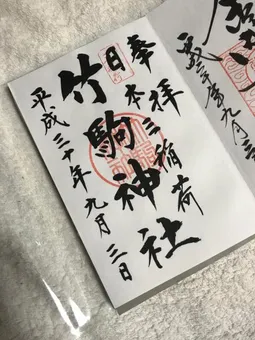 奉拝
日本三稲荷
竹駒神社
平成三十年九月三日
九月三